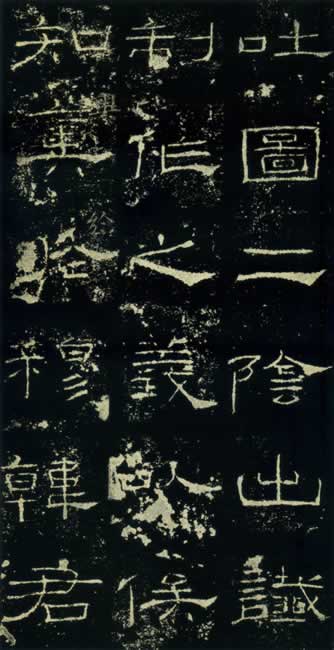 吐圖二陰出讖
制作之義以俟
知奧於穆韓君